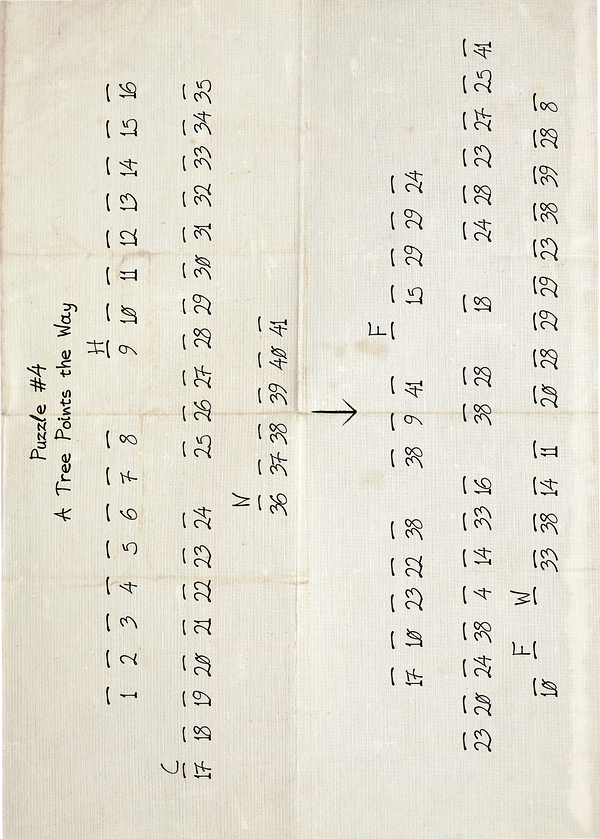 Puzzle #4
A Tree Points the Way
H
1 2 3 4 5 6 7 8 9 10 11 12 13 14 15 16
C
17 18 19 20 21 22 23 24 25 26 27 28 29 30 31 32 33 34 35
N
36 37 38 39 40 41
F
17 10 23 22 38 38 9 41 15 29 29 24
23 20 24 38 4 14 33 16 38 28 18 24 28 23 27 25 41
F W
10 33 38 14 11 20 28 29 29 23 38 39 28 8